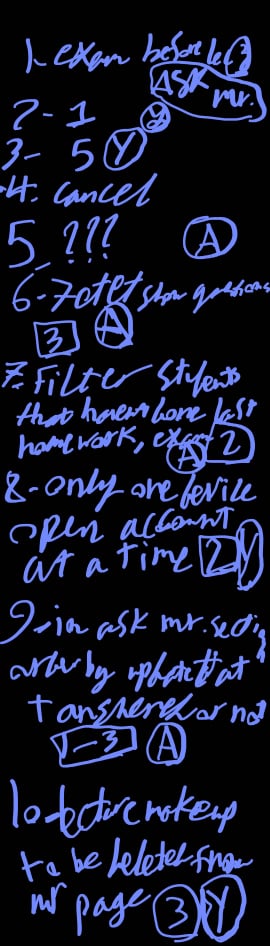 1. exam before lec 3
ASK mr.
2- 1 Y
3- 5 Y
4. cancel
5_ ??? A
6- show questions
3 A
7. Filter students
that havent done last
homework, exam 2
A
8- only one device
open account
at a time 2 Y
9- in ask mr. section
order by updated at
+ answered or not
1-3 A
10- lecture makeup
to be deleted from
mr page 3 Y